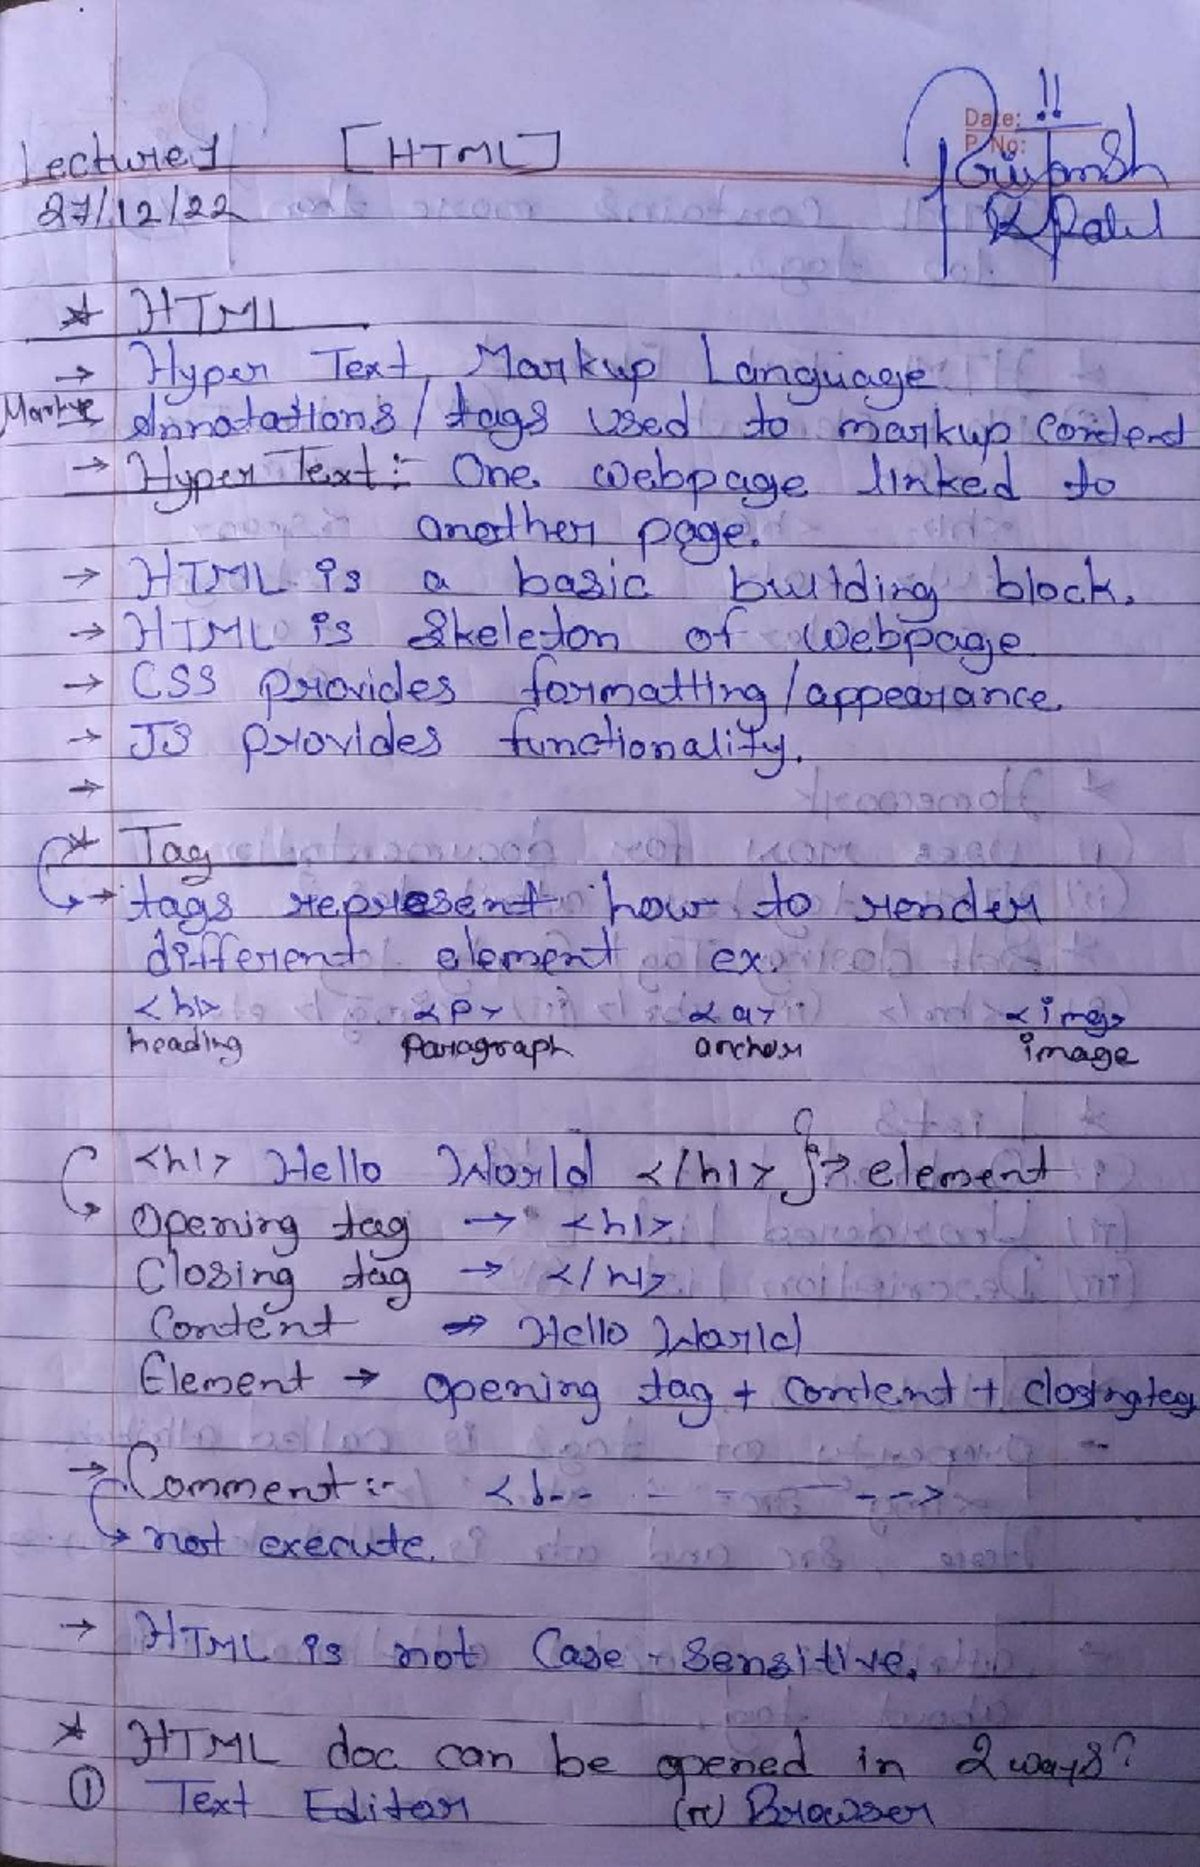 Lecture 1 [HTML]
Date: !!
P. No:
27/12/22
Patel
* HTML
→ Hyper Text Markup Language
Markup Annotations/tags used to markup content
→ Hyper Text :- One webpage linked to
another page.
→ HTML is a basic building block.
→ HTML is Skeleton of Webpage
→ CSS provides formatting/appearance.
→ JS provides functionality.
→
* Tag
→ tags represent how to render
different element ex.
<h1> <p> <a> <img>
heading Paragraph anchor image
<h1> Hello World </h1> }→ element
Opening tag → <h1>
Closing tag → </h1>
Content → Hello World
Element → opening tag + content + closing tag
→ Comment :- <!-- - - - - - -->
→ not execute.
→ HTML is not Case-Sensitive.
* HTML doc can be opened in 2 ways?
① Text Editor (ii) Browser